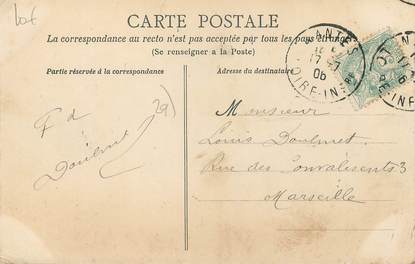 CARTE POSTALE
La correspondance au recto n'est pas acceptée par tous les pays étrangers
(Se renseigner à la Poste)
Partie réservée à la correspondance
Adresse du destinataire
29)
F d
Doulmet
Monsieur
Louis Doulmet
Rue des Convalescents 3
Marseille
NANTES
17
06
LOIRE-INFRE